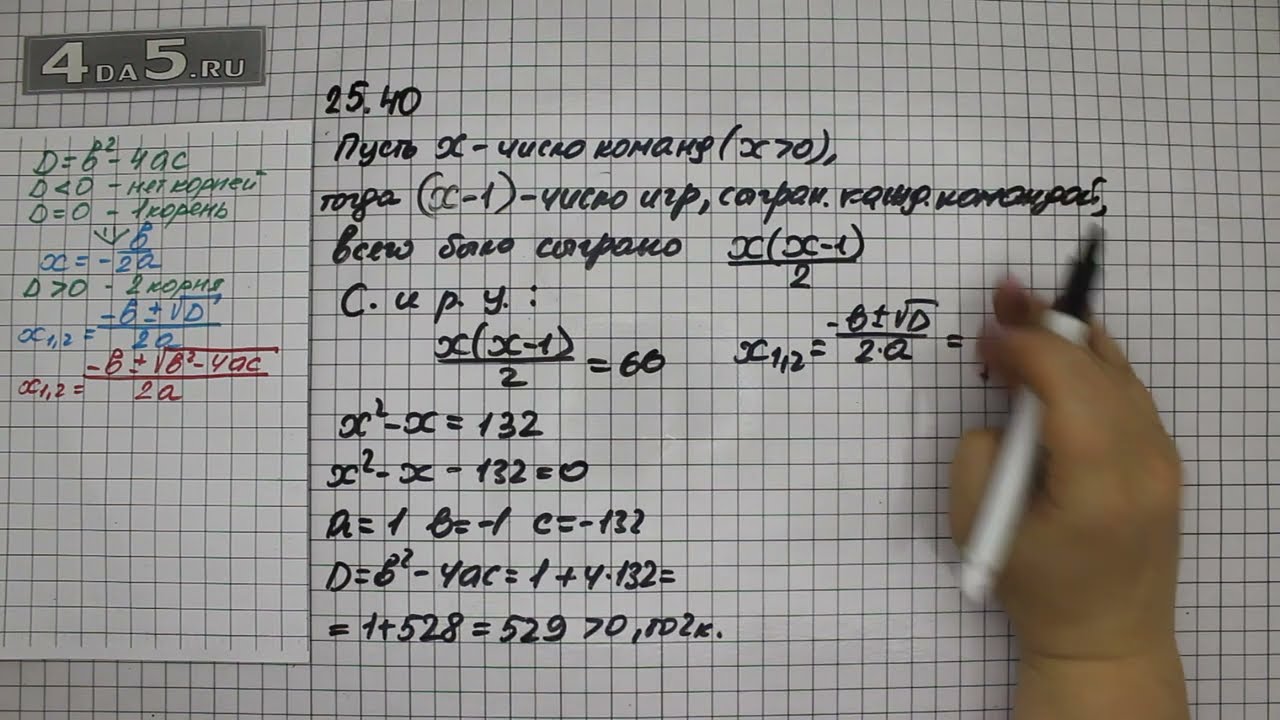 4DA5.RU
D=в²-4ас
D<0 - нет корней
D=0 - 1 корень
x=-в/2а
D>0 - 2 корня
x₁,₂=(-в±√D)/2а
x₁,₂=(-в±√(в²-4ас))/2а
25.40
Пусть x - число команд (x>0),
тогда (x-1) - число игр, сыгран. кажд. командой,
всего было сыграно x(x-1)/2
С. и р. у. :
x(x-1)/2 = 66
x²-x=132
x²-x-132=0
а=1 в=-1 с=-132
D=в²-4ас=1+4·132=
=1+528=529>0, то 2к.
x₁,₂=(-в±√D)/(2·а)=